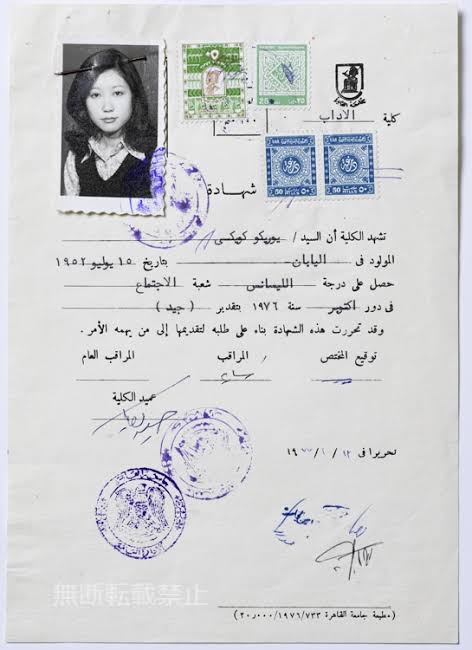 جامعة القاهرة
كلية الآداب
شهادة
تشهد الكلية أن السيد / يوريكو كويكى
المولود فى اليابان بتاريخ ١٥ يوليو ١٩٥٢
حصل على درجة الليسانس شعبة الاجتماع
فى دور أكتوبر سنة ١٩٧٦ بتقدير ( جيد )
وقد تحررت هذه الشهادة بناء على طلبه لتقديمها إلى من يهمه الأمر .
توقيع المختص المراقب المراقب العام
عميد الكلية
تحريرا فى ١٢ / ١ / ١٩
無断転載禁止
( مطبعة جامعة القاهرة ٧٣٣/١٩٧٦/٢٠٠٠٠ )